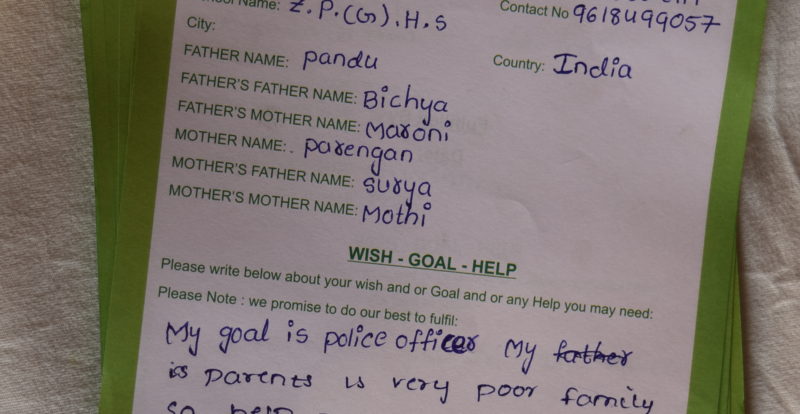 Name: Z.P.(G).H.S
Contact No 9618499057
City:
FATHER NAME: pandu
Country: India
FATHER'S FATHER NAME: Bichya
FATHER'S MOTHER NAME: Maroni
MOTHER NAME: . parengan
MOTHER'S FATHER NAME: surya
MOTHER'S MOTHER NAME: Mothi
WISH - GOAL - HELP
Please write below about your wish and or Goal and or any Help you may need:
Please Note : we promise to do our best to fulfil:
My goal is police officer My father
is parents is very poor family
so help